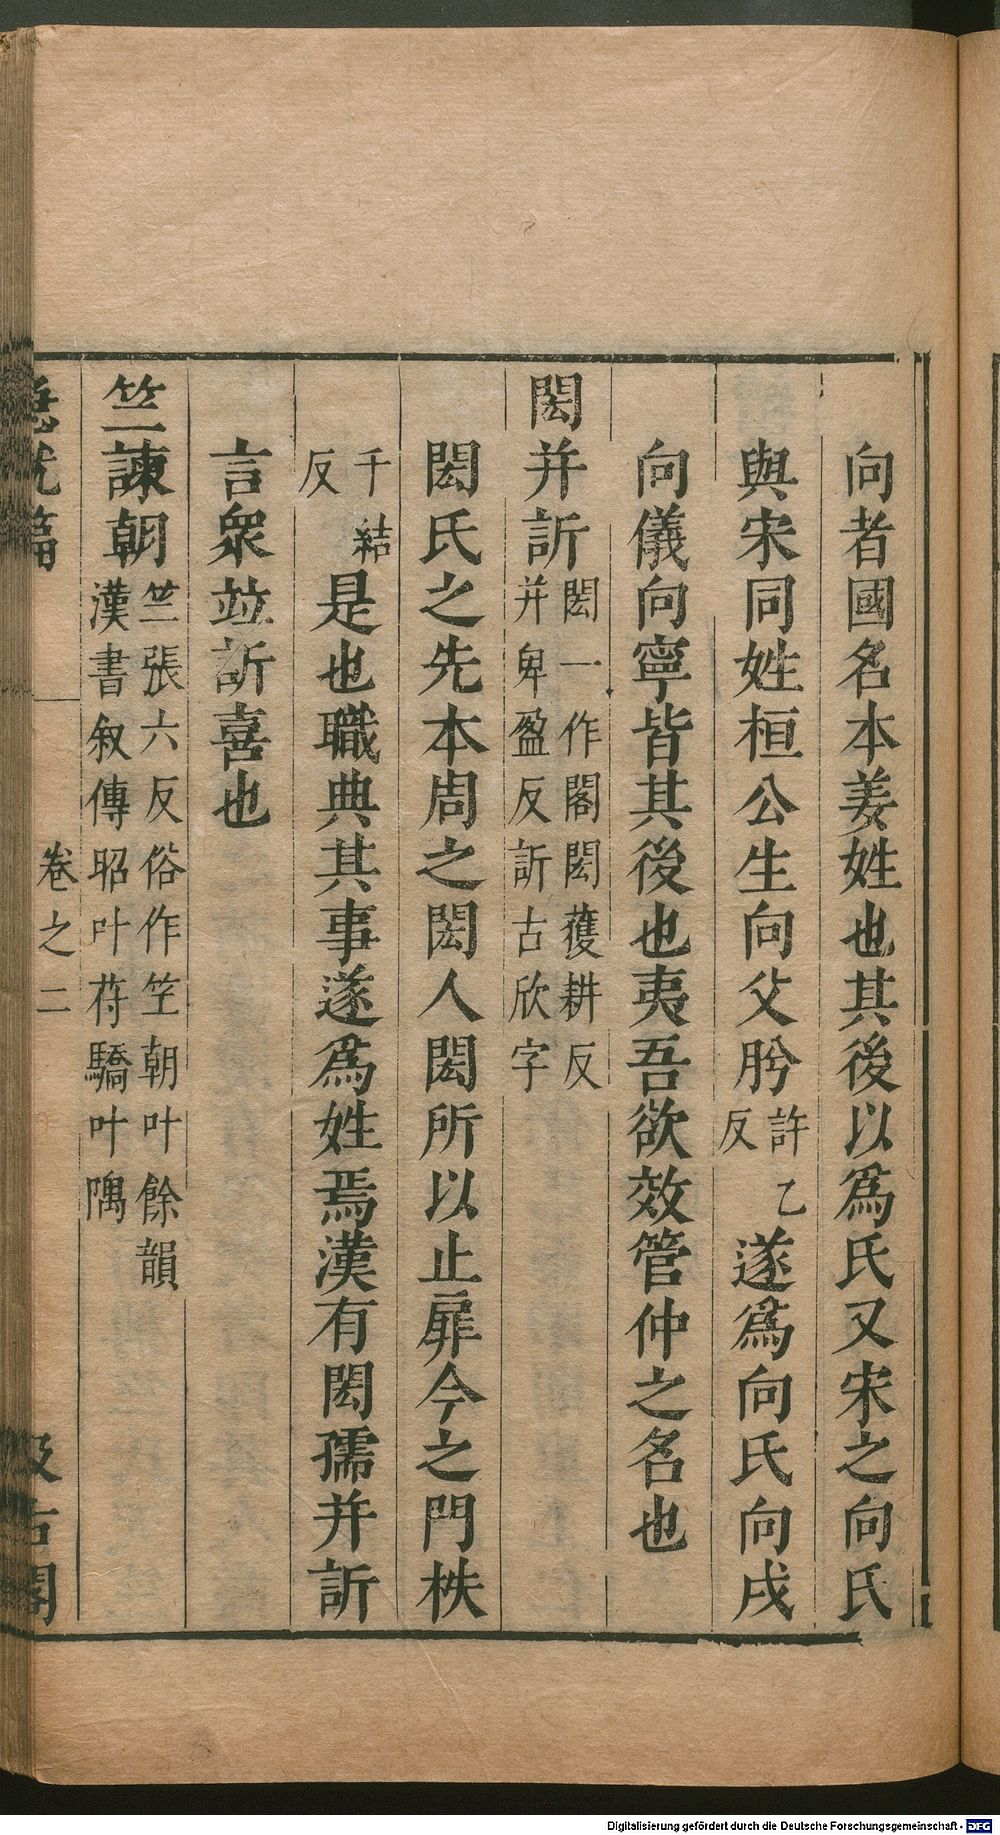 向者國名本姜姓也其後以爲氏又宋之向氏
與宋同姓桓公生向父肸許乙反遂爲向氏向戌
向儀向寧皆其後也夷吾欲效管仲之名也
閎并訢閎一作閣閎獲耕反并卑盈反訢古欣字
閎氏之先本周之閎人閎所以止扉今之門柣
千結反是也職典其事遂爲姓焉漢有閎孺并訢
言衆竝訢喜也
竺諫朝竺張六反俗作笁朝叶餘韻漢書叙傳昭叶苻驕叶隅
急就篇 卷之二 汲古閣
Digitalisierung gefördert durch die Deutsche Forschungsgemeinschaft - DFG